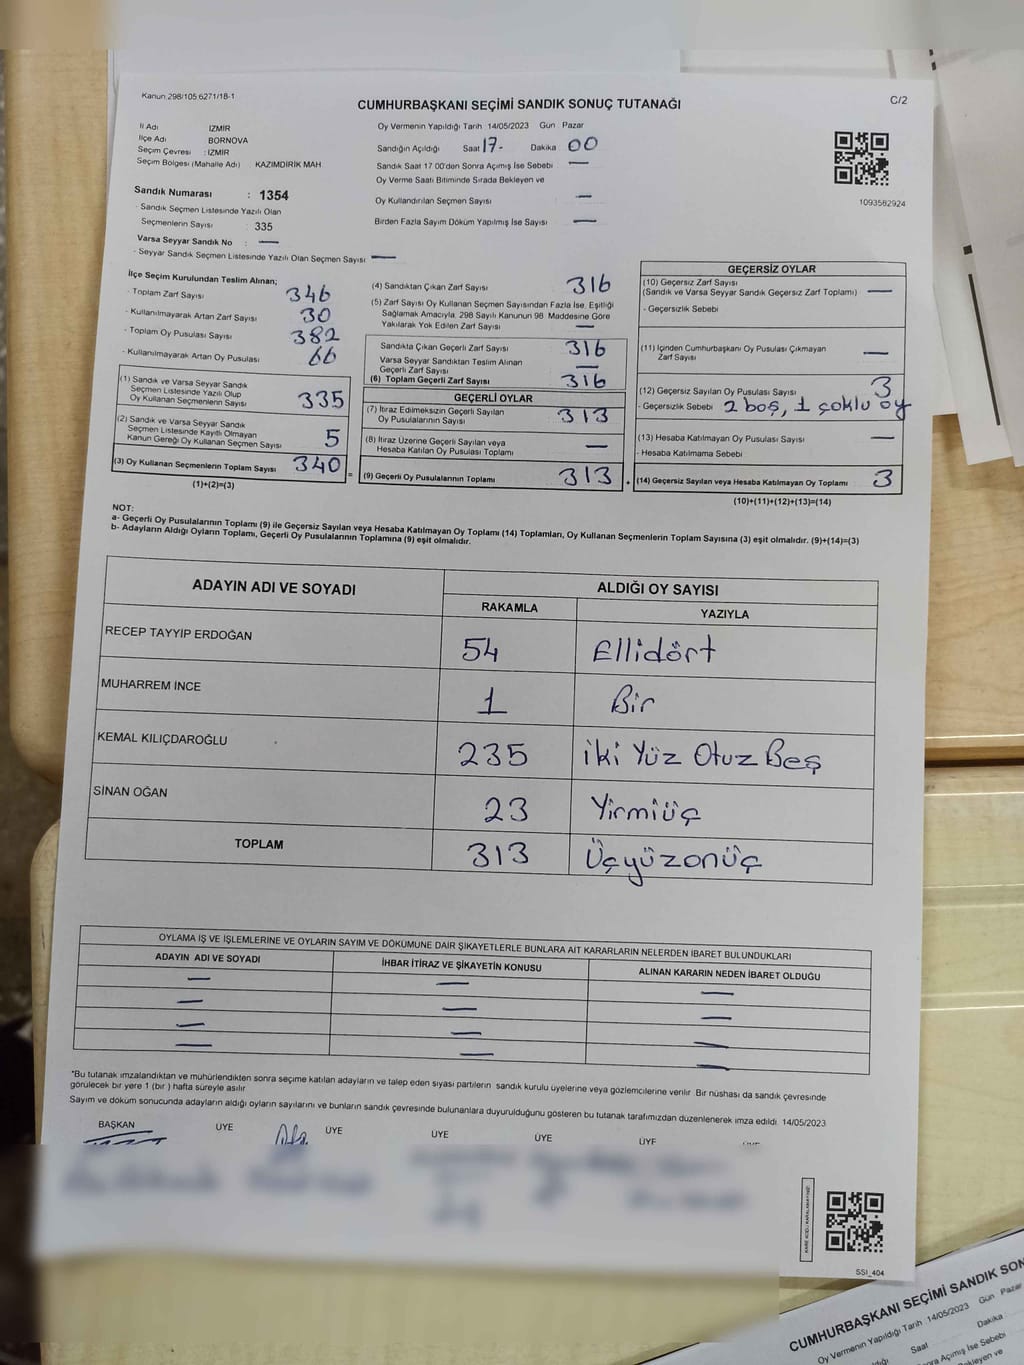 Kanun 298/105 6271/18-1
CUMHURBAŞKANI SEÇİMİ SANDIK SONUÇ TUTANAĞI
C/2
İl Adı İZMİR
İlçe Adı BORNOVA
Seçim Çevresi : İZMİR
Seçim Bölgesi (Mahalle Adı) KAZIMDİRİK MAH.
Sandık Numarası : 1354
- Sandık Seçmen Listesinde Yazılı Olan
Seçmenlerin Sayısı : 335
Varsa Seyyar Sandık No : —
- Seyyar Sandık Seçmen Listesinde Yazılı Olan Seçmen Sayısı —
Oy Vermenin Yapıldığı Tarih 14/05/2023 Gün Pazar
Sandığın Açıldığı Saat 17- Dakika 00
Sandık Saat 17 00'den Sonra Açımış İse Sebebi —
Oy Verme Saati Bitiminde Sırada Bekleyen ve
Oy Kullandırılan Seçmen Sayısı —
Birden Fazla Sayım Döküm Yapılmış İse Sayısı —
1093582924
İlçe Seçim Kurulundan Teslim Alınan;
- Toplam Zarf Sayısı 346
- Kullanılmayarak Artan Zarf Sayısı 30
- Toplam Oy Pusulası Sayısı 382
- Kullanılmayarak Artan Oy Pusulası 66
(1) Sandık ve Varsa Seyyar Sandık
Seçmen Listesinde Yazılı Olup
Oy Kullanan Seçmenlerin Sayısı 335
(2) Sandık ve Varsa Seyyar Sandık
Seçmen Listesinde Kayıtlı Olmayan
Kanun Gereği Oy Kullanan Seçmen Sayısı 5
(3) Oy Kullanan Seçmenlerin Toplam Sayısı 340 =
(1)+(2)=(3)
(4) Sandıktan Çıkan Zarf Sayısı 316
(5) Zarf Sayısı Oy Kullanan Seçmen Sayısından Fazla İse, Eşitliği
Sağlamak Amacıyla, 298 Sayılı Kanunun 98. Maddesine Göre
Yakılarak Yok Edilen Zarf Sayısı —
Sandıkta Çıkan Geçerli Zarf Sayısı 316
Varsa Seyyar Sandıktan Teslim Alınan
Geçerli Zarf Sayısı —
(6) Toplam Geçerli Zarf Sayısı 316
GEÇERLİ OYLAR
(7) İtiraz Edilmeksizin Geçerli Sayılan
Oy Pusulalarının Sayısı 313
(8) İtiraz Üzerine Geçerli Sayılan veya
Hesaba Katılan Oy Pusulası Toplamı —
(9) Geçerli Oy Pusulalarının Toplamı 313
GEÇERSİZ OYLAR
(10) Geçersiz Zarf Sayısı
(Sandık ve Varsa Seyyar Sandık Geçersiz Zarf Toplamı) —
- Geçersizlik Sebebi
(11) İçinden Cumhurbaşkanı Oy Pusulası Çıkmayan
Zarf Sayısı —
(12) Geçersiz Sayılan Oy Pusulası Sayısı 3
- Geçersizlik Sebebi 2 boş, 1 çoklu oy
(13) Hesaba Katılmayan Oy Pusulası Sayısı —
- Hesaba Katılmama Sebebi
(14) Geçersiz Sayılan veya Hesaba Katılmayan Oy Toplamı 3
(10)+(11)+(12)+(13)=(14)
NOT:
a- Geçerli Oy Pusulalarının Toplamı (9) ile Geçersiz Sayılan veya Hesaba Katılmayan Oy Toplamı (14) Toplamları, Oy Kullanan Seçmenlerin Toplam Sayısına (3) eşit olmalıdır. (9)+(14)=(3)
b- Adayların Aldığı Oyların Toplamı, Geçerli Oy Pusulalarının Toplamına (9) eşit olmalıdır.
ADAYIN ADI VE SOYADI ALDIĞI OY SAYISI
RAKAMLA YAZIYLA
RECEP TAYYİP ERDOĞAN 54 Ellidört
MUHARREM İNCE 1 Bir
KEMAL KILIÇDAROĞLU 235 İki Yüz Otuz Beş
SİNAN OĞAN 23 Yirmiüç
TOPLAM 313 Üçyüzonüç
OYLAMA İŞ VE İŞLEMLERİNE VE OYLARIN SAYIM VE DÖKÜMÜNE DAİR ŞİKAYETLERLE BUNLARA AİT KARARLARIN NELERDEN İBARET BULUNDUKLARI
ADAYIN ADI VE SOYADI İHBAR İTİRAZ VE ŞİKAYETİN KONUSU ALINAN KARARIN NEDEN İBARET OLDUĞU
— — —
— — —
— — —
— — —
*Bu tutanak imzalandıktan ve mühürlendikten sonra seçime katılan adayların ve talep eden siyasi partilerin sandık kurulu üyelerine veya gözlemcilerine verilir. Bir nüshası da sandık çevresinde
görülecek bir yere 1 (bir ) hafta süreyle asılır
Sayım ve döküm sonucunda adayların aldığı oyların sayılarını ve bunların sandık çevresinde bulunanlara duyurulduğunu gösteren bu tutanak tarafımızdan düzenlenerek imza edildi. 14/05/2023
BAŞKAN ÜYE ÜYE ÜYE ÜYE ÜYE
SSİ_404
CUMHURBAŞKANI SEÇİMİ SANDIK SON
Oy Vermenin Yapıldığı Tarih 14/05/2023 Gün Pazar
Saat Dakika
Sonra Açımış İse Sebebi
Bekleyen ve